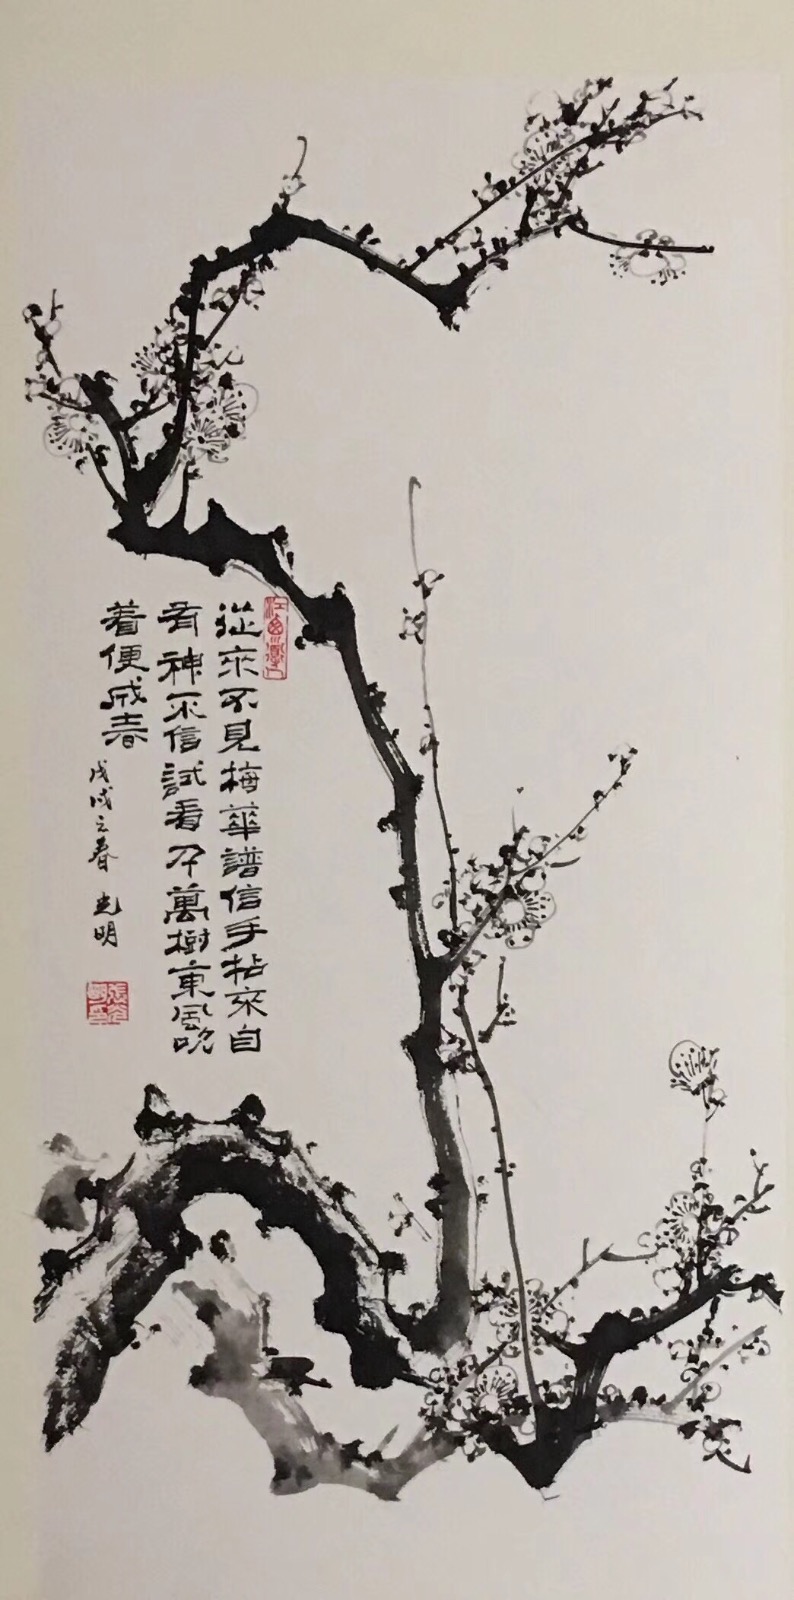 從來不見梅華譜信手拈來自
有神不信試看千萬樹東風吹
着便成春
戊戌之春 光明